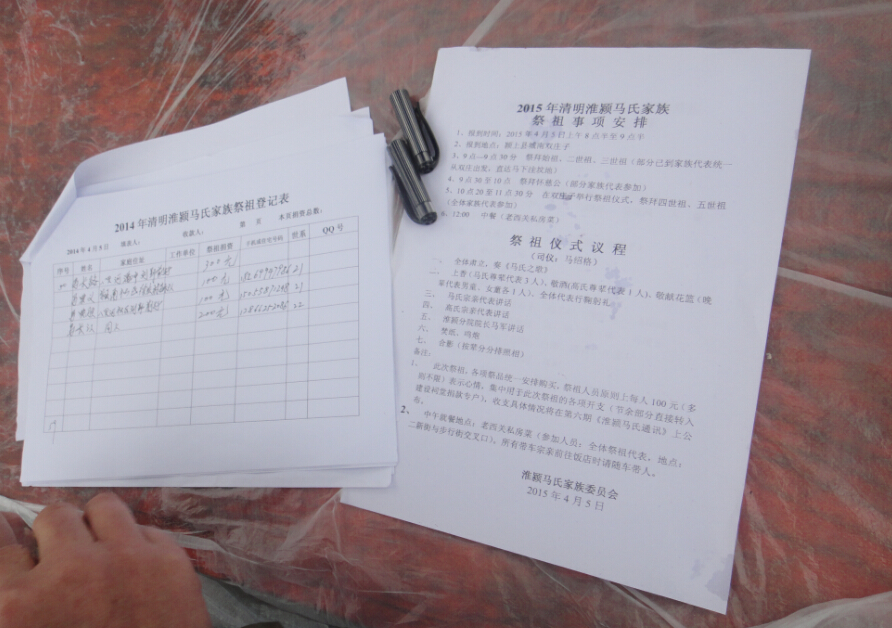 2014年清明淮颍马氏家族祭祖登记表
2014年4月5日 填表人： 收款人： 第 页 本页捐资总数：
序号 姓名 家庭住址 工作单位 祭祖捐资 手机或住宅号码 世系 QQ号
300元
100元 21
100元 21
200元 22
2015年清明淮颍马氏家族
祭祖事项安排
1、接到时间：2015年4月5日上午8点半至9点半
2、接到地点：颍上县城南双庄子
3、9点--9点30分 祭拜始祖、二世祖、三世祖（部分已到家族代表统一
从双庄出发，直达马下注坟地）
4、9点30至10点 祭拜怀慈公（部分家族代表参加）
5、10点20至11点30分 在双庄子举行祭祖仪式，祭拜四世祖、五世祖
（全体家族代表参加）
6、12:00 中餐（老四关私房菜）
祭祖仪式议程
（司仪：马绍格）
一、 全体肃立，奏《马氏之歌》
二、 上香（马氏尊辈代表3人），敬酒（高氏尊辈代表1人），敬献花篮（晚
辈代表男童、女童各1人），全体代表行鞠躬礼
三、 马氏宗亲代表讲话
四、 高氏宗亲代表讲话
五、 淮颍分院院长马军讲话
六、 焚纸、鸣炮
七、 合影（按辈分分排照相）
备注：
1、 此次祭祖，各项祭品统一安排购买，祭祖人员原则上每人100元（多
则不限）表示心情，集中用于此次祭祖的各项开支（节余部分直接转入
建设祠堂捐款专户），收支具体情况将在第六期《淮颍马氏通讯》上公
布。
2、 中午就餐地点：老四关私房菜（参加人员：全体祭祖代表，地点：
二新街与步行街交叉口），所有带车宗亲前往饭店时请随车带人。
淮颍马氏家族委员会
2015年4月5日